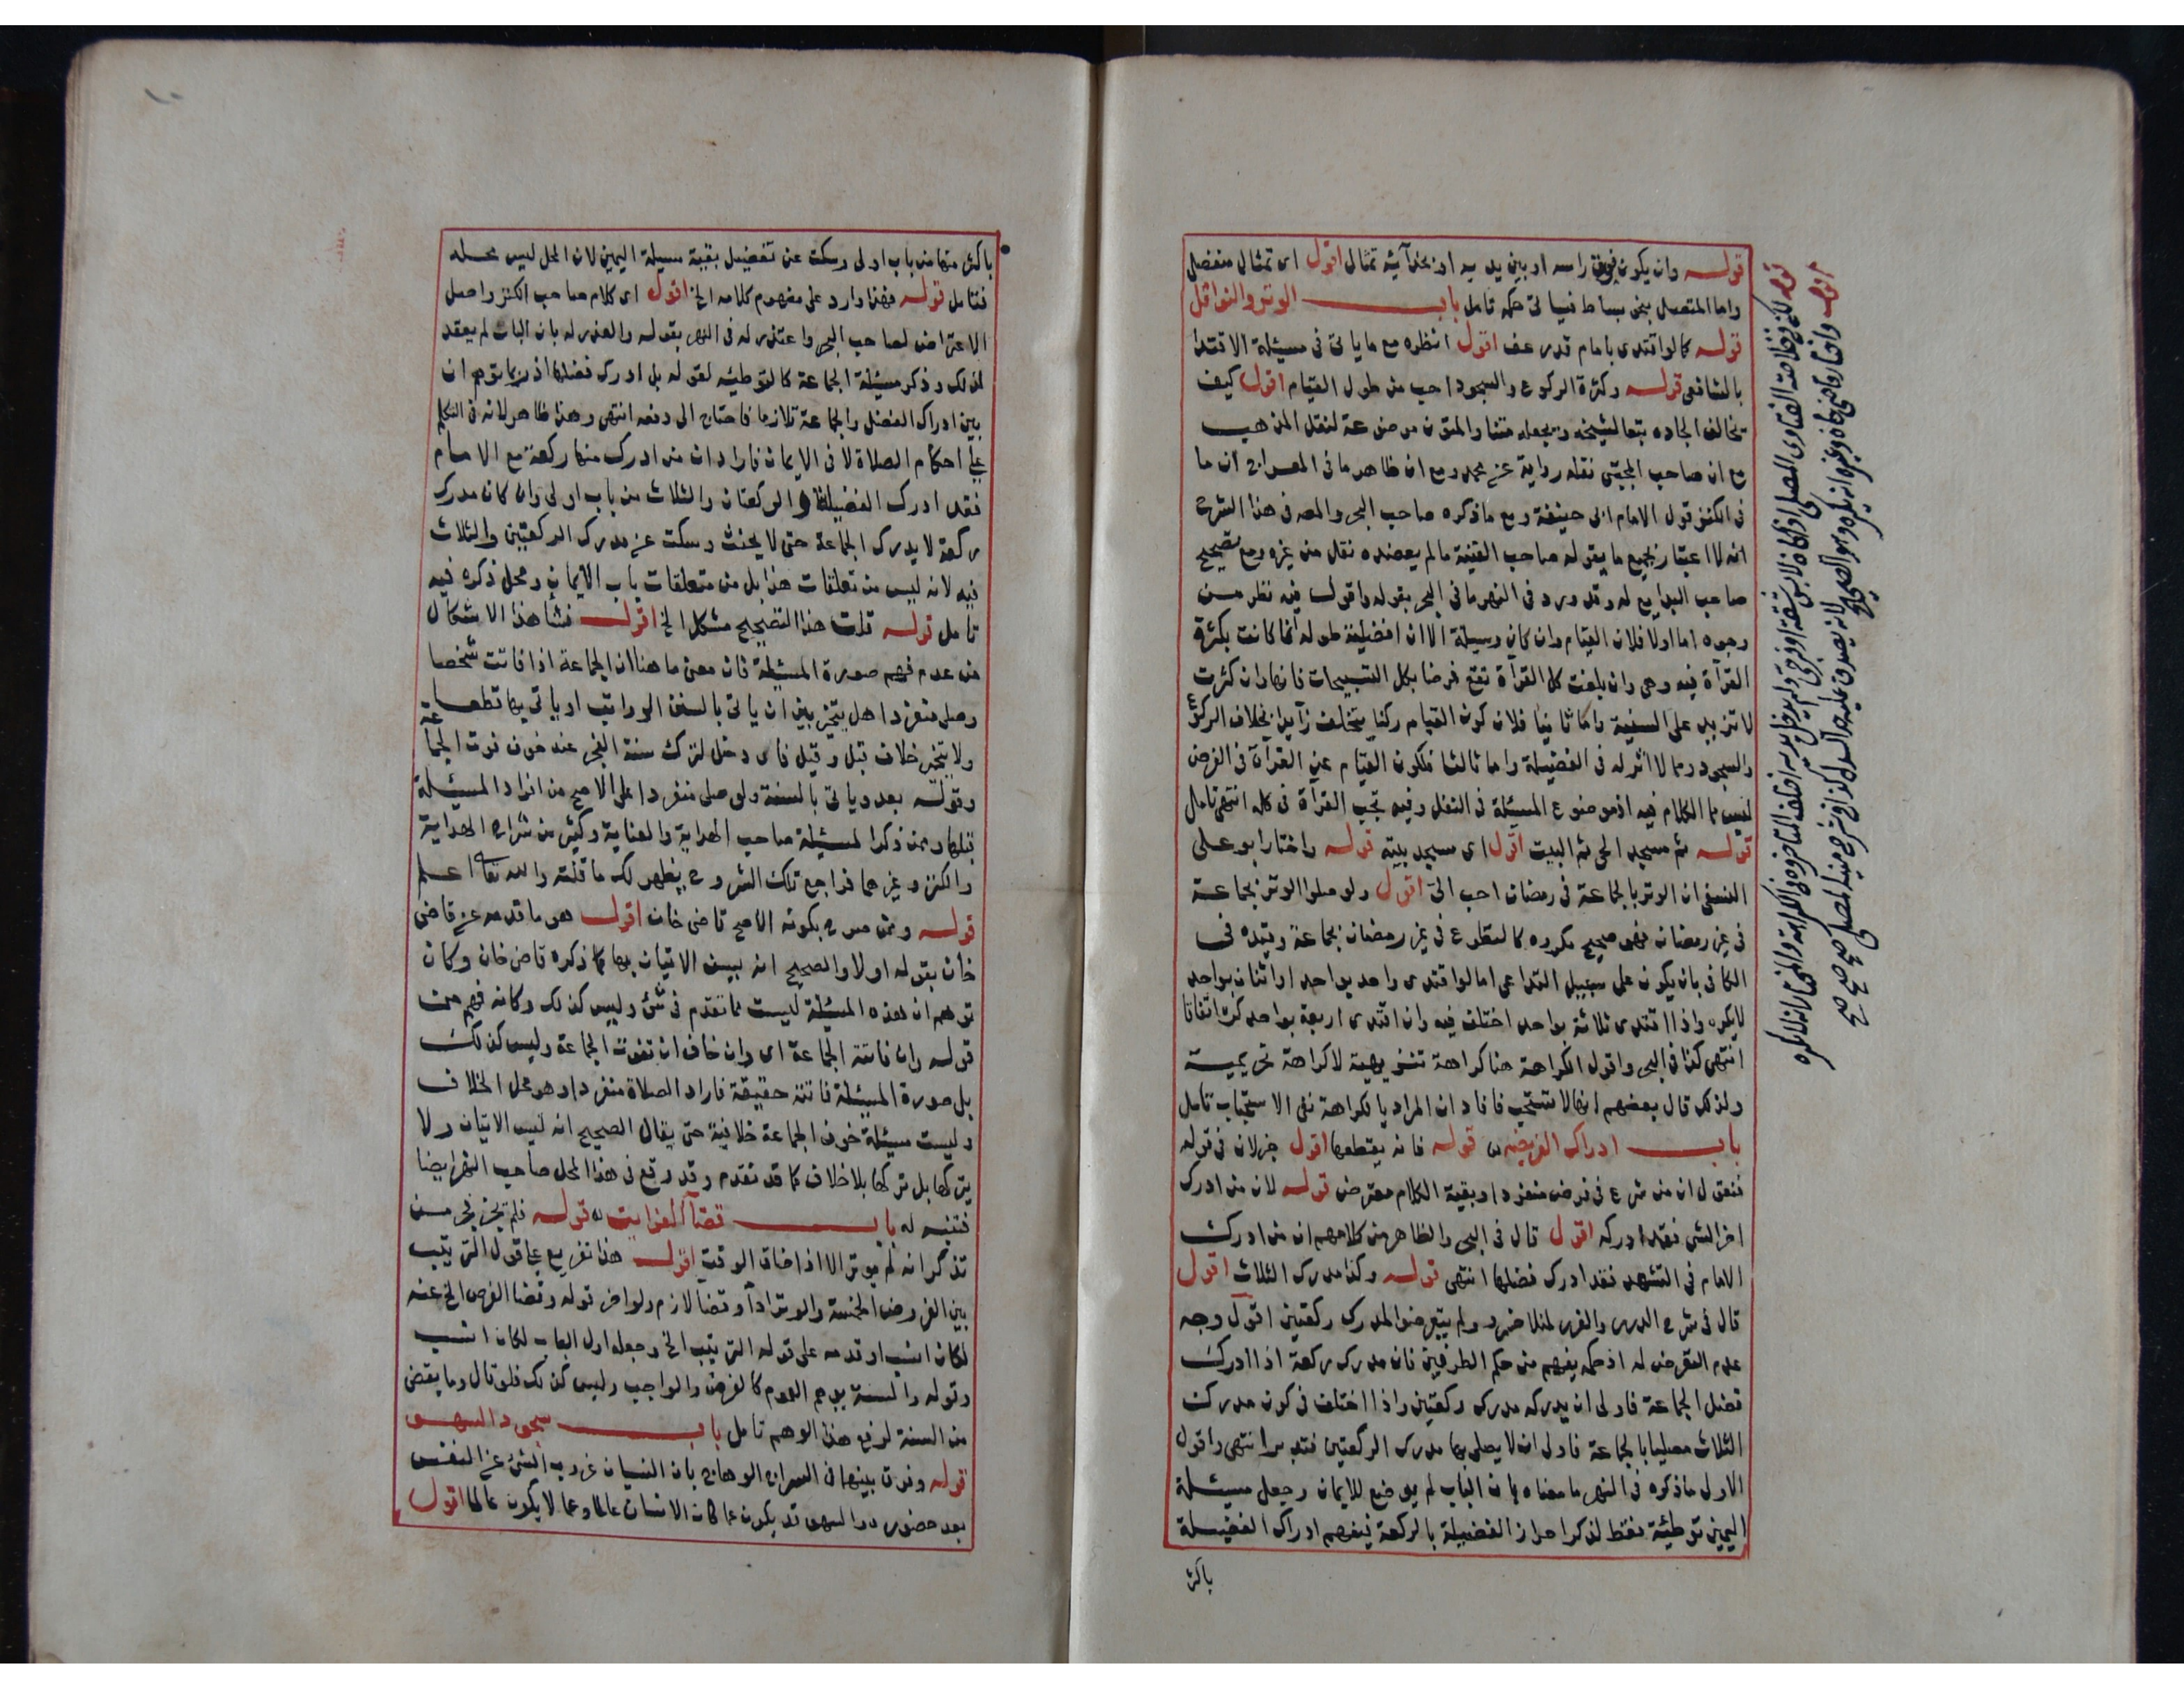 قوله وان يكون فوق راسه او بين يديه او بحذآئه تمثال اقول اى تمثال منفصل
واما المتصل بنحو بساط فسياتى حكمه تامل باب الوتر والنوافل
قوله كما لو اقتدى بامام قد رعف اقول انظره مع ما ياتى فى مسئلة الاقتدا
بالشافعى قوله وكثرة الركوع والسجود احب من طول القيام اقول كيف
تخالف الجاده تبعا لشيخه ويجعله متنا والمتون موضوعة لنقل المذهب
مع ان صاحب المجتبى نقله رواية عن محمد ومع ان ظاهر ما فى المعراج ان ما
فى الكنز قول الامام ابى حنيفة ومع ما ذكره صاحب البحر والمصه فى هذا الشرح
انه لا اعتبار بجميع ما يقوله صاحب القنية ما لم يعضده نقل من غيره ومع تصحيح
صاحب البدايع له وقد ورد فى النهر ما فى البحر بقوله واقول فيه نظر من
وجوه اما اولا فلان القيام وان كان وسيلة الا ان افضلية طوله انما كانت بكثرة
القرآة فيه وهى وان بلغت كل القرآة تقع فرضا بكل التسبيحات فانها وان كثرت
لا تزيد على السنية واما ثانيا فلان كون القيام ركنا يتخلف زآيدا بخلاف الركوع
والسجود مما لا اثر له فى الفضيلة واما ثالثا فلكون القيام عين القرآة فى الفرض
ليس مما الكلام فيه اذ موضوع المسئلة فى النفل وفيه تجب القرآة فى كله انتهى تامل
قوله ثم مسجد الحى ثم البيت اقول اى مسجد بيته قوله واختار ابو على
النسفى ان الوتر بالجماعة فى رمضان احب الىّ اقول ولو صلوا الوتر بجماعة
فى غير رمضان فهو صحيح مكروه كالتطوع فى غير رمضان بجماعة وقيده فى
الكافى بان يكون على سبيل التداعى اما لو اقتدى واحد بواحد او اثنان بواحد
لا يكره واذا اقتدى ثلاثة بواحد اختلف فيه وان اقتدى اربعة بواحد كره اتفاقا
انتهى كذا فى البحر واقول الكراهة هنا كراهة تنزيهية لا كراهة تحريمية
ولذلك قال بعضهم انها لا تستحب فافاد ان المراد بالكراهة نفى الاستحباب تامل
باب ادراك الفريضه قوله فانه يقطعها اقول خبر لان فى قوله
فنقول ان من شرع فى فرض منفردا وبقية الكلام معترض قوله لان من ادرك
اخر الشى فقد ادركه اقول قال فى البحر والظاهر من كلامهم ان من ادرك
الامام فى التشهد فقد ادرك فضلها انتهى قوله وكذا مدرك الثلاث اقول
قال فى شرح الدرر والغرر لمنلا خسرو ولم يتعرضوا لمدرك ركعتين اقول وجه
عدم التعرض له اذ حكمه يفهم من حكم الطرفين فان مدرك ركعة اذا ادرك
فضل الجماعة فاولى ان يدركه مدرك ركعتين واذا اختلف فى كون مدرك
الثلاث مصليا بالجماعة فاولى ان لا يصلى بها مدرك الركعتين فتدبر انتهى واقول
الاولى ما ذكره فى النهر ما معناه بان الباب لم يوضع للايمان وجعل مسئلة
اليمين توطئة فقط لذكر احراز الفضيلة بالركعة فيفهم ادراك الفضيلة
باكثر
قوله لكن فى خلاصة الفتاوى المصلى اذا كان لابس شقة او فرجى ولم يدخل يديه اختلف المتاخرون فى الكراهة والمختار انه لا يكره
اقول واختار قاضى خان وغيره انه يكره وهو الصحيح لانه يصدق عليه حد السدل كذا فى شرح منية المصلى صح صح صح
باكثر منها من باب اولى وسكت عن تفصيل بقية مسيلة اليمين لان المحل ليس محله
فتامل قوله فهذا وارد على مفهوم كلامه الخ اقول اى كلام صاحب الكنز واصل
الاعتراض لصاحب البحر واعتذر له فى النهر بقوله والعذر له بان الباب لم يعقد
لذلك وذكر مسئلة الجماعة كالتوطئه لقوله بل ادرك فضلها اذ ربما توهم ان
بين ادراك الفضل والجماعة تلازما فاحتاج الى دفعه انتهى وهذا ظاهر لانه فى التكلم
على احكام الصلاة لا فى الايمان فاراد ان من ادرك منها ركعة مع الامام
فقد ادرك الفضيلة و الركعتان والثلاث من باب اولى وان كان مدرك
ركعة لا يدرك الجماعة حتى لا يحنث وسكت عن مدرك الركعتين والثلاث
فيه لانه ليس من تعلقات هذا بل من متعلقات باب الايمان ومحل ذكره فيه
تامل قوله قلت هذا التصحيح مشكل الخ اقول فنشا هذا الاشكال
من عدم فهم صورة المسئلة فان معنى ما هنا ان الجماعة اذا فاتت شخصا
وصلى منفردا هل يتخير بين ان ياتى بالسنن الرواتب او ياتى بها قطعا
ولا يتخير خلاف قبل وقيل فاى دخل لترك سنة الفجر عند خوف فوت الجماعة
وقوله بعد وياتى بالسنة ولو صلى منفردا على الاصح من افراد المسئلة
قبلها وممن ذكر المسئلة صاحب الهداية والعناية وكثير من شراح الهداية
والكنز وغيرهما فراجع تلك الشروح يظهر لك ما قلته والله تعالى اعلم
قوله وممن صرح بكونه الاصح قاضى خان اقول هو ما قدمه عن قاضى
خان بقوله اولا والصحيح انه ليس الاتيان بها كما ذكره قاضى خان وكان
توهم ان هذه المسئلة ليست مما تقدم فى شئ وليس كذلك وكانه فهم من
قوله وان فاتته الجماعة اى وان خاف ان تفوت الجماعة وليس كذلك
بل صورة المسئلة فاتته حقيقة فاراد الصلاة منفردا وهو محل الخلاف
وليست مسيلة خوف الجماعة خلافية حتى يقال الصحيح انه ليس الاتيان ولا
يتركها بل تركها بلا خلاف كما قد تقدم وقد وقع فى هذا المحل صاحب النهر ايضا
فتنبه له باب قضآ الفوايت قوله فلم يجز فجر من
تذكر انه لم يوتر الا اذا ضاق الوقت اقول هذا تفريع على قوله الترتيب
بين الفروض الخمسة والوتر ادآ وقضآ لازم ولو اخر قوله وقضا الفرض الخ عنه
لكان انسب او قدمه على قوله الترتيب الخ وجعله اول الباب لكان انسب
وقوله والسنة يوهم العموم كالفرض والواجب وليس كذلك فلو قال وما يقضى
من السنة لرفع هذا الوهم تامل باب سجود السهو
قوله وفرق بينهما فى السراج الوهاج بان النسيان عزوب الشئ عن النفس
بعد حضوره والسهو قد يكون عما كان الانسان عالما وعما لا يكون عالما اقول